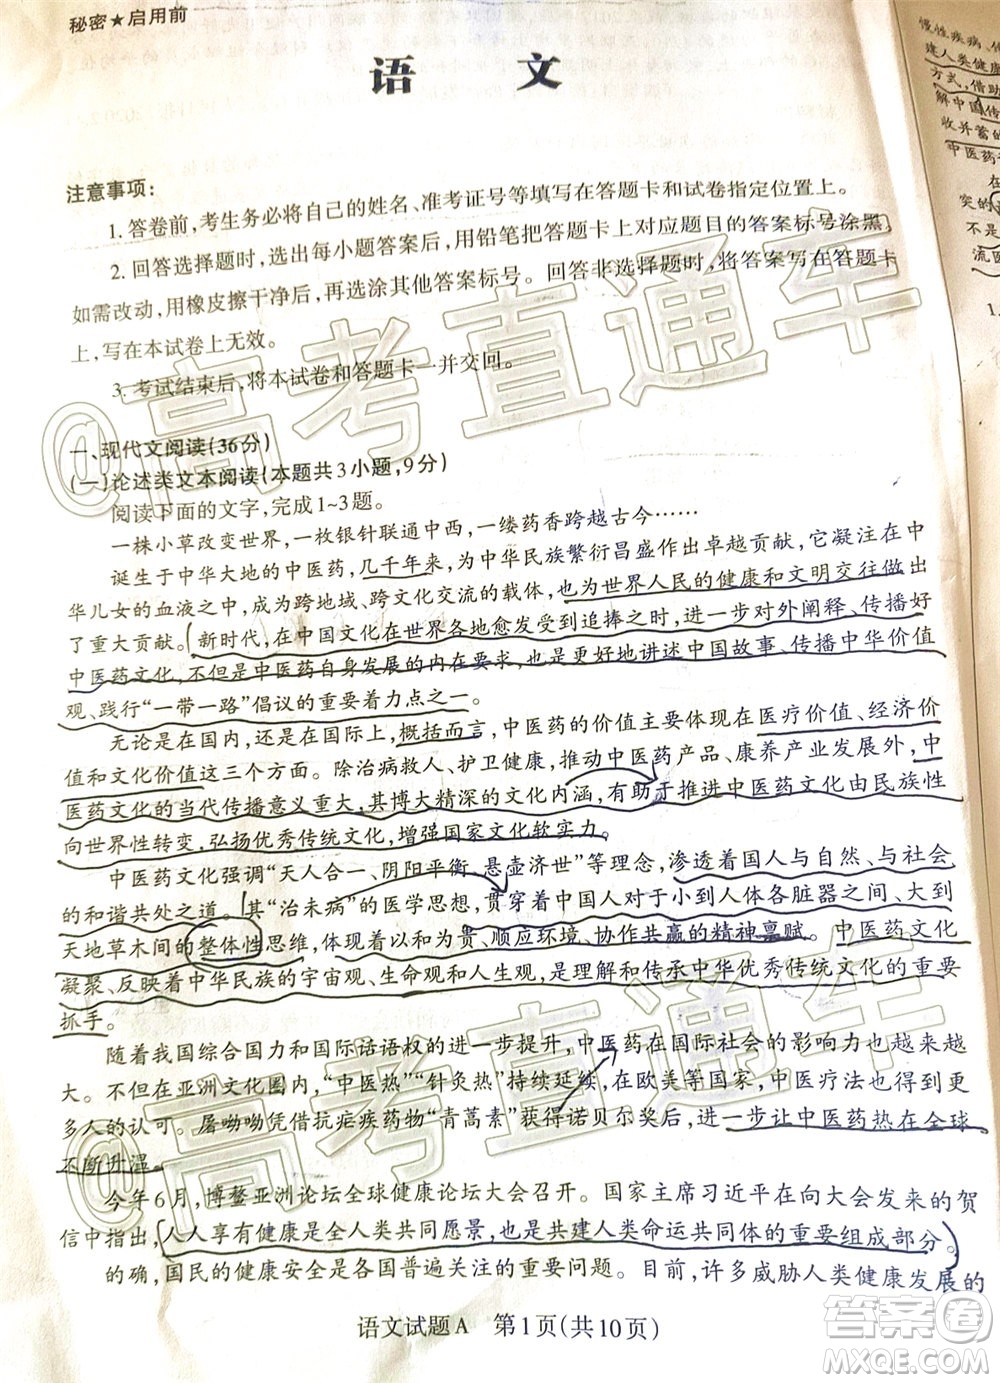 秘密★启用前
语 文
注意事项:
1. 答卷前,考生务必将自己的姓名、准考证号等填写在答题卡和试卷指定位置上。
2. 回答选择题时,选出每小题答案后,用铅笔把答题卡上对应题目的答案标号涂黑,
如需改动,用橡皮擦干净后,再选涂其他答案标号。回答非选择题时,将答案写在答题卡
上,写在本试卷上无效。
3. 考试结束后,将本试卷和答题卡一并交回。
一、现代文阅读(36分)
(一)论述类文本阅读(本题共3小题,9分)
阅读下面的文字,完成1~3题。
一株小草改变世界,一枚银针联通中西,一缕药香跨越古今……
诞生于中华大地的中医药,几千年来,为中华民族繁衍昌盛作出卓越贡献,凝注在中
华儿女的血液之中,成为跨地域、跨文化交流的载体,也为世界人民的健康和文明交往做出
了重大贡献。新时代,在中国文化在世界各地愈发受到追捧之时,进一步对外阐释、传播好
中医药文化,不但是中医药自身发展的内在要求,也是更好地讲述中国故事、传播中华价值
观、践行“一带一路”倡议的重要着力点之一。
无论是在国内,还是在国际上,概括而言,中医药的价值主要体现在医疗价值、经济价
值和文化价值这三个方面。除治病救人、护卫健康,推动中医药产品、康养产业发展外,中
医药文化的当代传播意义重大,其博大精深的文化内涵,有助于推进中医药文化由民族性
向世界性转变,弘扬优秀传统文化,增强国家文化软实力。
中医药文化强调“天人合一、阴阳平衡、悬壶济世”等理念,渗透着国人与自然、与社会
的和谐共处之道。其“治未病”的医学思想,贯穿着对于小到人体各脏器之间、大到
天地草木间的整体性思维,体现着以和为贵、顺应环境、协作共赢的精神禀赋。中医药文化
凝聚、反映着中华民族的宇宙观、生命观和人生观,是理解和传承中华优秀传统文化的重要
抓手。
随着我国综合国力和国际话语权的进一步提升,中医药在国际社会的影响力也越来越
大。不但在亚洲文化圈,“中医热”“针灸热”持续延续,在欧美等国家,中医疗法也得到更
多人的认可。屠呦呦凭借抗疟疾药物“青蒿素”获得诺贝尔奖后,进一步让中医药热在全球
不断升温。
今年6月,博鳌亚洲论坛全球健康论坛大会召开。国家主席习近平在向大会发来的贺
信中指出,人人享有健康是全人类共同愿景,也是共建人类命运共同体的重要组成部分。
的确,国民的健康安全是各国普遍关注的重要问题。目前,许多威胁人类健康发展的
语文试题A 第1页(共10页)
慢性疾病、
建人类健康
方式,借助
解中国传
收并蓄的
中医药
在
突的
不是
流医
1.
@高考直通车
@高考直通车
答案圈
MXQE.COM